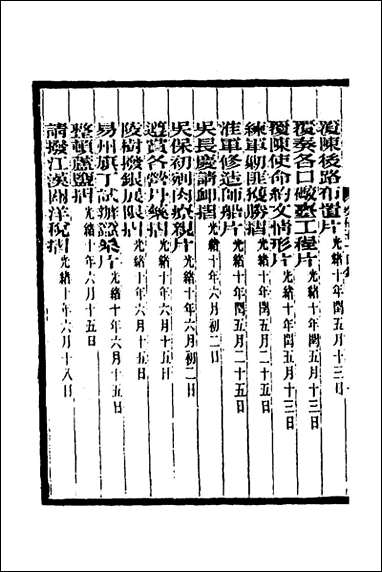 覆陳後路布置片光緒十年閏五月十三日
覆奏各口礮臺工程片光緒十年閏五月十三日
覆陳使命約文情形片光緒十年閏五月十三日
練軍勦匪獲勝摺光緒十年閏五月二十五日
淮軍修造師船片光緒十年閏五月二十五日
吳長慶請卹摺光緒十年六月初二日
吳保初刲肉療親片光緒十年六月初二日
遵賞各營丹藥摺光緒十年六月十五日
陵樹撥銀展限片光緒十年六月十五日
易州旗丁試辦片光緒十年六月十五日
整頓蘆鹽摺光緒十年六月十五日
請撥江漢關洋稅摺光緒十年六月十八日